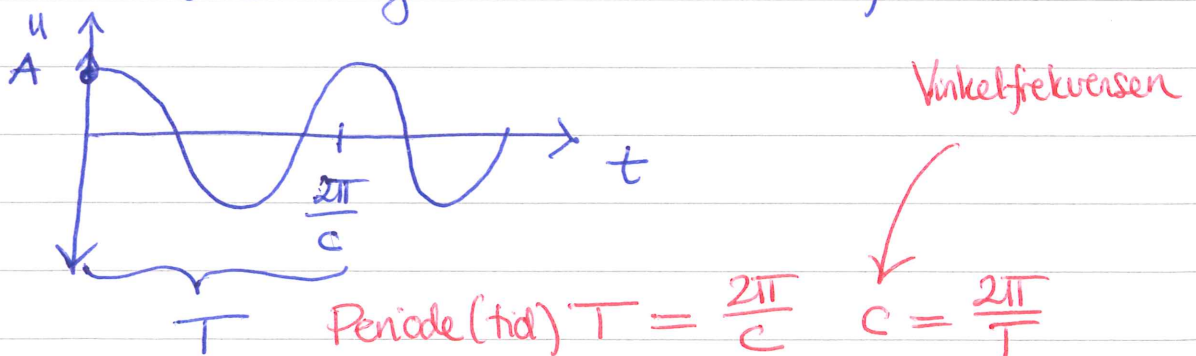 u
A
Vinkelfrekvensen
t
2π/c
T Periode (tid) T = 2π/c c = 2π/T